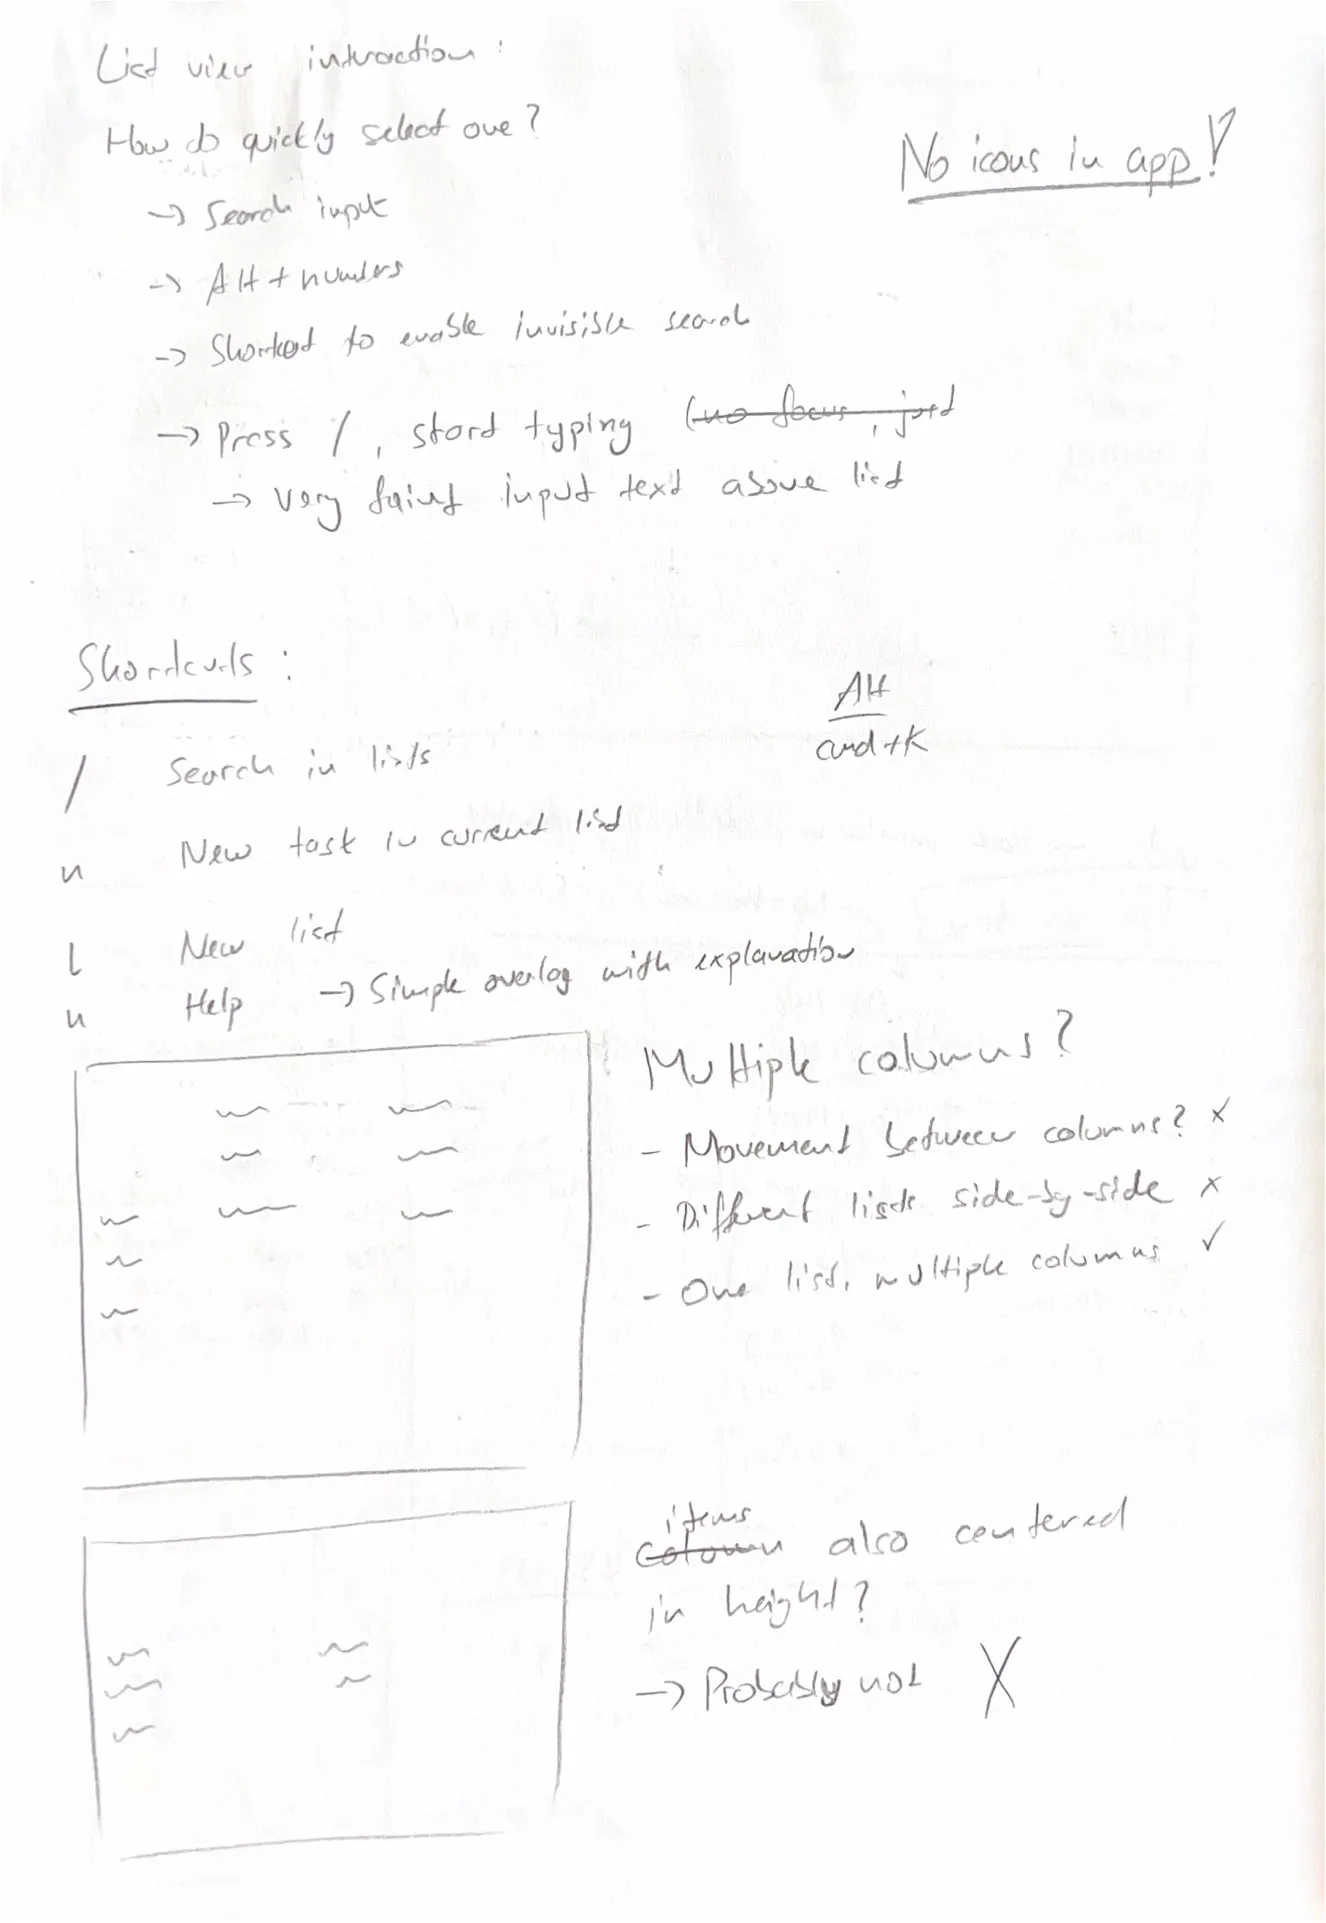 List view interaction:
How do quickly select one?
No icons in app!
→ Search input
→ Alt + numbers
→ Shortcut to enable invisible search
→ Press /, start typing (no focus, just
→ Very faint input text above list
Shortcuts:
Alt
cmd+K
/ Search in lists
n New task in current list
l New list
Help → Simple overlay with explanation
Multiple columns?
- Movement between columns? x
- Different lists side-by-side x
- One list, multiple columns ✓
items
Column also centered
in height?
→ Probably not X